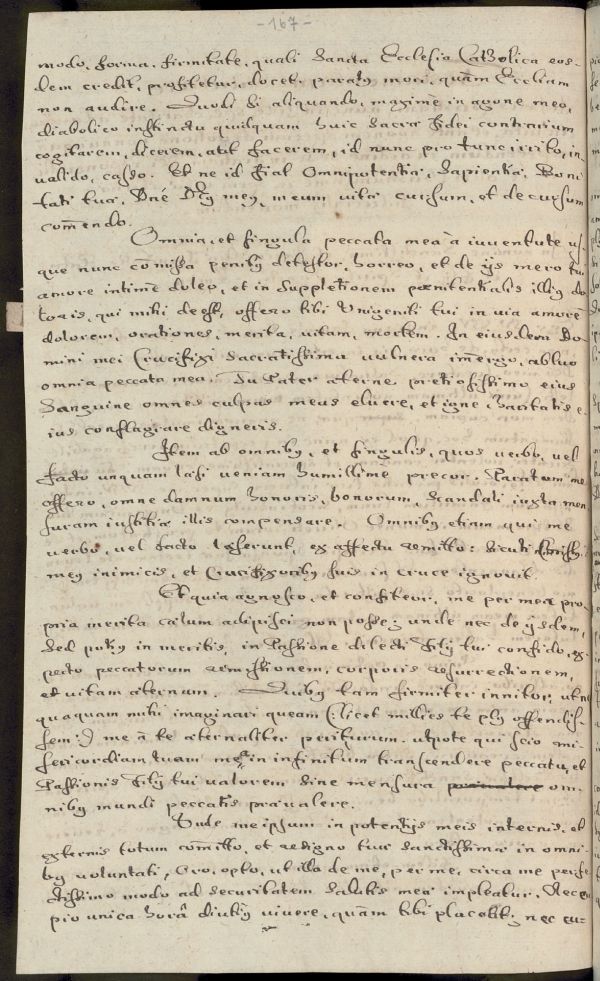 -167-
modo, forma, firmitate, quali Sancta Ecclesia Catholica eos-
dem credit, profitetur, docet: paratq mori, quàm Eccliam
non audire. Quodsi aliquando, maximè in agone meo,
diabolico instinctu quidquam huic sacræ Fidei contrarium
cogitarem, dicerem, aut facerem, id nunc pro tunc irrito, in-
valido, casso. Et ne id fiat Omnipotentiæ, Sapientiæ, Boni
tati tuæ, Dñe Dg mey, meum vitæ cursum, et decursum
com̃endo.
Omnia, et singula peccata mea à iuventute us-
que nunc com̃issa penitg detestor, horreo, et de ijs mero tui
amore intimè doleo, et in suppletionem pœnitentialis illig do
loris, qui mihi deest, offero tibi Unigeniti tui in via amorē
dolorem, orationes, merita, vitam, mortem. In eiusdem Do
mini mei Crucifixi sacratissima vulnera im̃ergo, abluo
omnia peccata mea. Tu Pater æterne pretiosissimo eius
Sanguine omnes culpas meas eluere, et igne charitatis e-
ius conflagrare digneris.
Item ab omnibg, et singulis, quos verbo, vel
facto unquam læsi veniam humillimè precor. Paratum me
offero, omne damnum honoris, bonorum, scandali iuxta men
suram iustitiæ illis compensare. Omnibg etiam qui me
verbo, vel facto læserunt, ex affectu remitto: sicuti Christg
meg inimicis, et Crucifixoribg suis in cruce ignovit.
Et quia agnosco, et confiteor, me per mea pro-
pria merita cælum adipisci non posse; unde nec de ijsdem,
sed potig in meritis, in Passione dilecti Filij tui confido, ex-
pecto peccatorum remissionem, corporis resurrectionem,
et vitam æternam. Quibg tam firmiter innitor, ut ne
quaquam mihi imaginari queam (: licet millies te plg offendis-
sem :) me à te æternaliter periturum. utpote qui scio mi-
sericordiam tuam mea in infinitum transcendere peccata, et
Passionis Filij tui valorem sine mensura om-
nibg mundi peccatis prævalere.
Unde me ipsum in potentijs meis internis, et
externis totum com̃itto, et resigno tuæ sanctissimæ in omni-
bg voluntati, Oro, opto, ut illa de me, per me, circa me perfe-
ctissimo modo ad securitatem salutis meæ impleatur. Nec cu
pio unica horâ diutig vivere, quàm tibi placebit; nec cu=